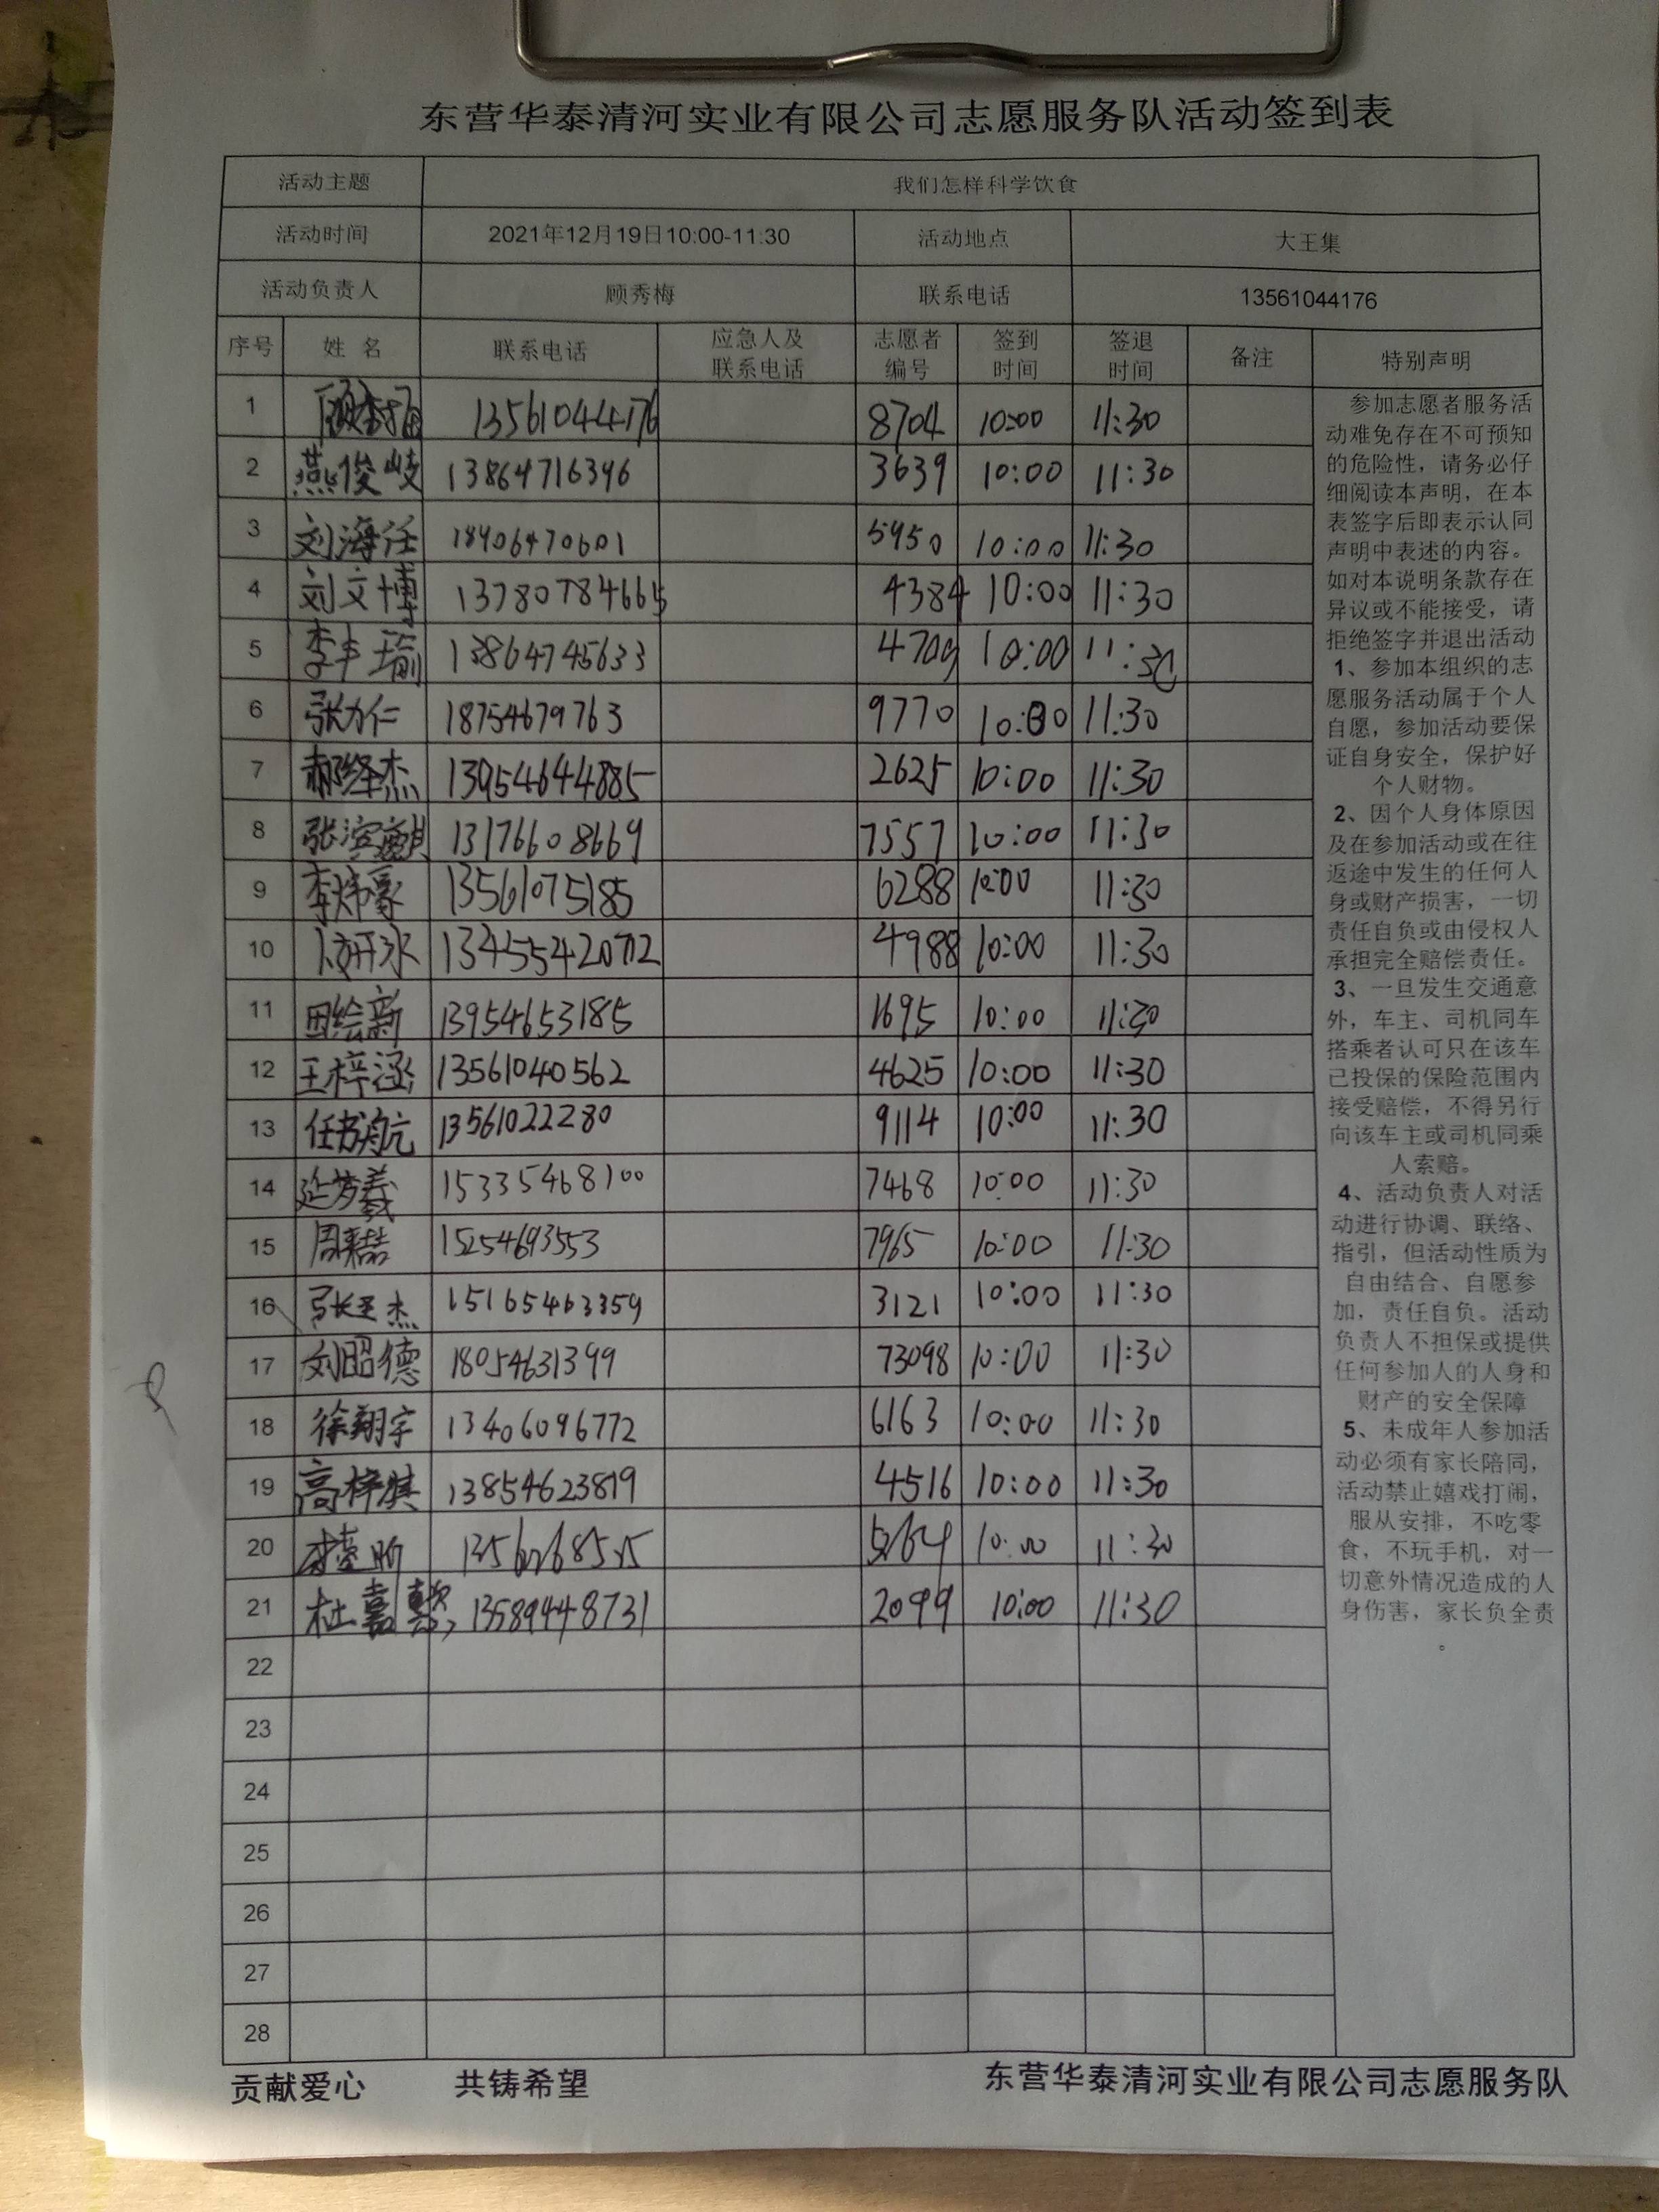 东营华泰清河实业有限公司志愿服务队活动签到表
活动主题 我们怎样科学饮食
活动时间 2021年12月19日10:00-11:30 活动地点 大王集
活动负责人 顾秀梅 联系电话 13561044176
序号 姓 名 联系电话 应急人及联系电话 志愿者编号 签到时间 签退时间 备注 特别声明
1 顾秀梅 13561044176 8704 10:00 11:30
2 燕俊岐 13864716396 3639 10:00 11:30
3 刘海任 18906470601 5950 10:00 11:30
4 刘文博 13780784665 4384 10:00 11:30
5 李丰瑜 13864745633 4709 10:00 11:30
6 张力仁 18754679763 9770 10:00 11:30
7 郝绎杰 13954644885 2625 10:00 11:30
8 13176608669 7557 10:00 11:30
9 李炜豪 13561075185 6288 10:00 11:30
10 4988 10:00 11:30
11 田绘新 13954653185 1695 10:00 11:30
12 王梓涵 13561040562 4625 10:00 11:30
13 任书航 13561022280 9114 10:00 11:30
14 延梦羲 15335468100 7468 10:00 11:30
15 15254693553 7965 10:00 11:30
16 张圣杰 15165463359 3121 10:00 11:30
17 刘昭德 18054631399 73098 10:00 11:30
18 徐翔宇 13406096772 6163 10:00 11:30
19 高梓淇 13854623819 4516 10:00 11:30
20 10:00 11:30
21 杜嘉慧 13589448731 2099 10:00 11:30
22
23
24
25
26
27
28
参加志愿者服务活
动难免存在不可预知
的危险性，请务必仔
细阅读本声明，在本
表签字后即表示认同
声明中表述的内容。
如对本说明条款存在
异议或不能接受，请
拒绝签字并退出活动
1、参加本组织的志
愿服务活动属于个人
自愿，参加活动要保
证自身安全，保护好
个人财物。
2、因个人身体原因
及在参加活动或在往
返途中发生的任何人
身或财产损害，一切
责任自负或由侵权人
承担完全赔偿责任。
3、一旦发生交通意
外，车主、司机同车
搭乘者认可只在该车
已投保的保险范围内
接受赔偿，不得另行
向该车主或司机同乘
人索赔。
4、活动负责人对活
动进行协调、联络、
指引，但活动性质为
自由结合、自愿参
加，责任自负。活动
负责人不担保或提供
任何参加人的人身和
财产的安全保障
5、未成年人参加活
动必须有家长陪同，
活动禁止嬉戏打闹，
服从安排，不吃零
食，不玩手机，对一
切意外情况造成的人
身伤害，家长负全责
。
贡献爱心 共铸希望 东营华泰清河实业有限公司志愿服务队